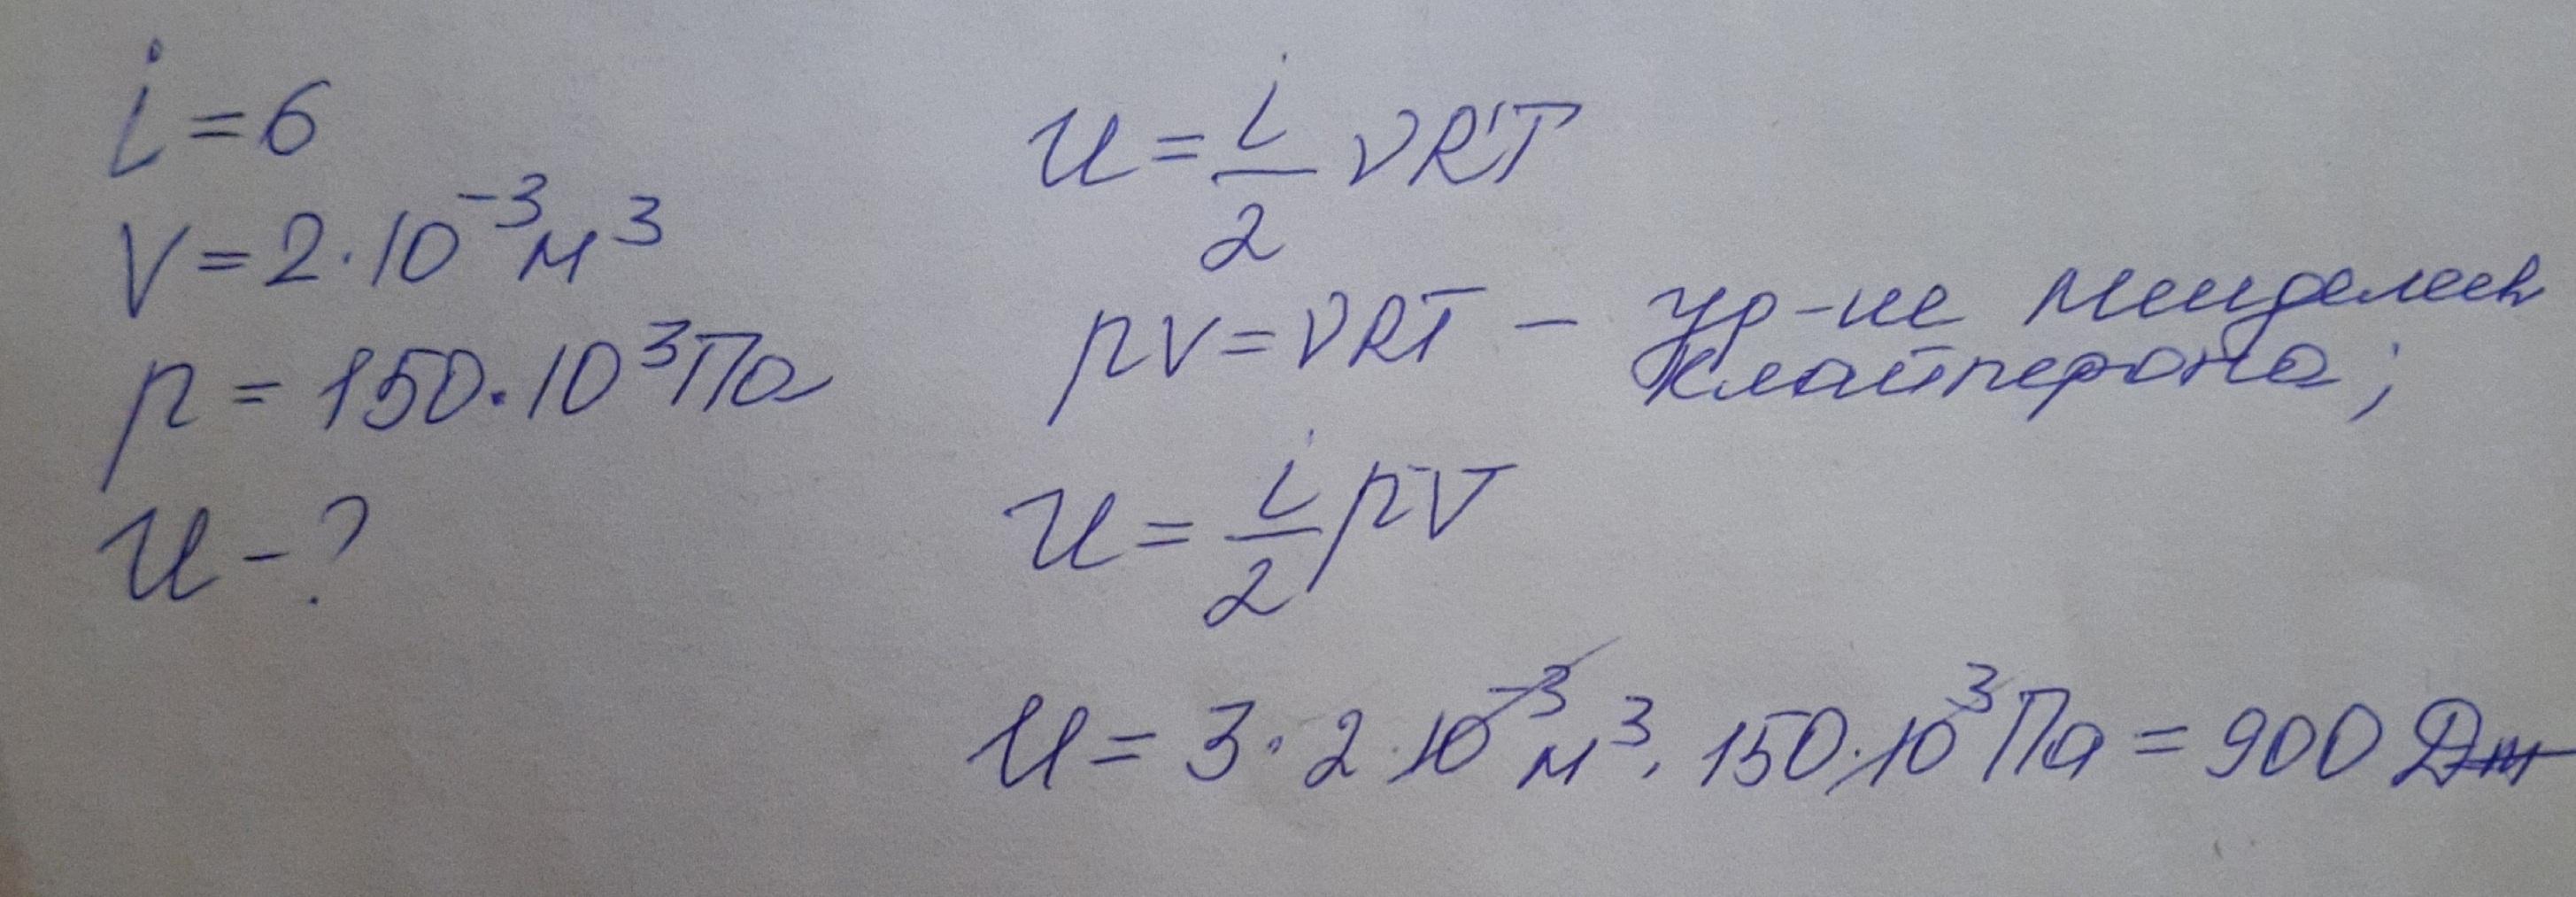 i = 6
V = 2 · 10⁻³ м³
p = 150 · 10³ Па
U - ?
U = i/2 νRT
pV = νRT - ур-ие Менделеев
Клайперона;
U = i/2 pV
U = 3 · 2 · 10⁻³ м³ · 150 · 10³ Па = 900 Дж